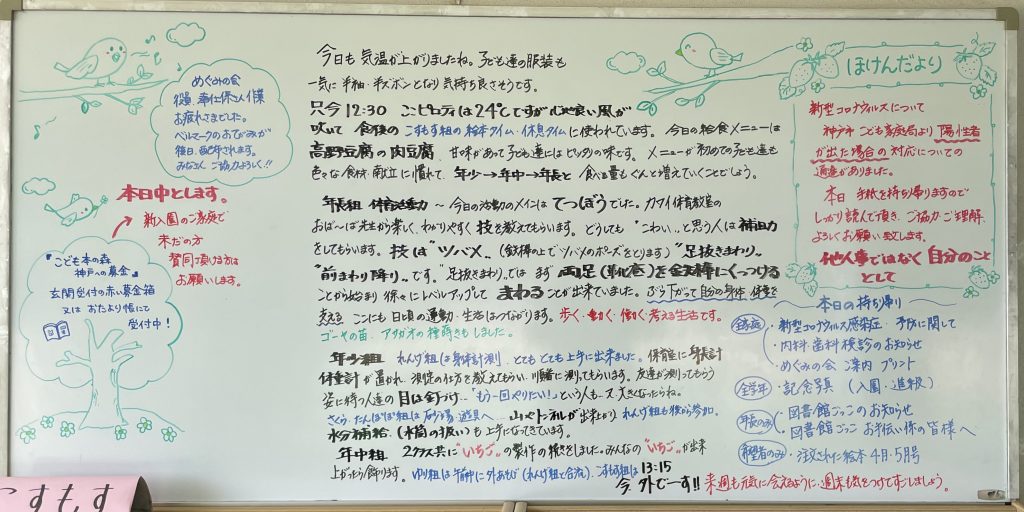 めぐみの会
役員、奉仕係さん作業
お疲れさまでした。
ベルマークのおてがみが
後日、配布されます。
みなさん ご協力よろしく!!
本日中とします。
新入園のご家庭で
未だの方
賛同頂ける方は
お願いします。
『こども本の森
神戸への募金』
玄関受付の赤い募金箱
又は おたより帳にて
受付中!
今日も気温が上がりましたね。子ども達の服装も
一気に 半袖・半ズボンとなり 気持ち良さそうです。
只今12:30
24℃ですが心地良い風が
吹いて 食後の こすもす組の 絵本タイム・休息タイムに使われています。 今日の給食メニューは
高野豆腐の肉豆腐。 甘味があって子ども達にはピッタリの味です。 メニューが初めての子ども達も
色々な食材・献立に慣れて 年少→年中→年長と 食べる量もぐんと増えていくことでしょう。
年長組 体育活動 〜今日の活動のメインは てつぼうでした。カワイ体育教室の
先生が楽しく、わかりやすく 技を教えてもらいます。どうしても "こわい…"と思う人は 補助
をしてもらいます。 技は "ツバメ"、(鉄棒の上でツバメのポーズをとります) "足抜きまわり"
"前まわり降り"です。"足抜きまわり"では まず 両足(靴の裏)を鉄棒にくっつける
ことから始まり 徐々にレベルアップして まわることが出来ていました。ぶら下がって自分の身体、体重を
支える ここにも 日頃の運動・生活はつながります。歩く・動く・働く・考える生活です。
ゴーヤの苗・アサガオの種蒔きもしました。
年少組 れんげ組は身体計測。とてもとても上手に出来ました。保育室に身長計
体重計が置かれ、測定の仕方を教えてもらい、順番に測ってもらいます。友達が測ってもらう
姿に待つ人達の目は釘づけ…"もう一回やりたい!"という人も…大きくなったらね。
さくら、たんぽぽ組は 砂場、遊具へ… 山やトンネルが出来上がり れんげ組も後から参加。
水分補給(水筒の扱い)も上手になってきています。
年中組 2クラス共に"いちご"の製作の続きをしました。みんなの"いちご"が出来
上がったら飾ります。 ゆり組は午前中に外あそび(れんげ組と合流)、こすもす組は 13:15
今 外でーす!! 来週も元気に会えるように、週末も気をつけてすごしましょう。
ほけんだより
新型コロナウイルスについて
神戸市 こども家庭局より 陽性者
が出た場合の 対応についての
通達がありました。
本日 手紙を持ち帰りますので
しっかり読んで頂き、ご協力・ご理解
よろしくお願い致します。
他人事ではなく 自分のこと
として
本日の持ち帰り
全家庭
・新型コロナウイルス感染症・予防に関して
・内科・歯科検診のお知らせ
・めぐみの会 案内 プリント
全学年 ・記念写真 (入園・進級)
年長のみ ・図書館ごっこのお知らせ
・図書館ごっこ お手伝い係の皆様へ
希望者のみ ・注文された絵本 4月・5月号
こすもす